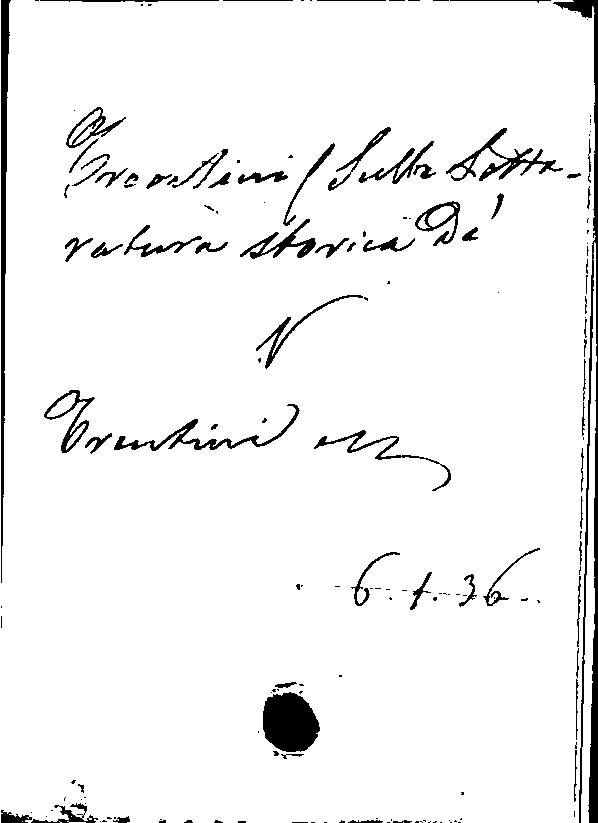 Trentini / Sulla Lette-
ratura storica De'
V
Trentini
6.1.36.